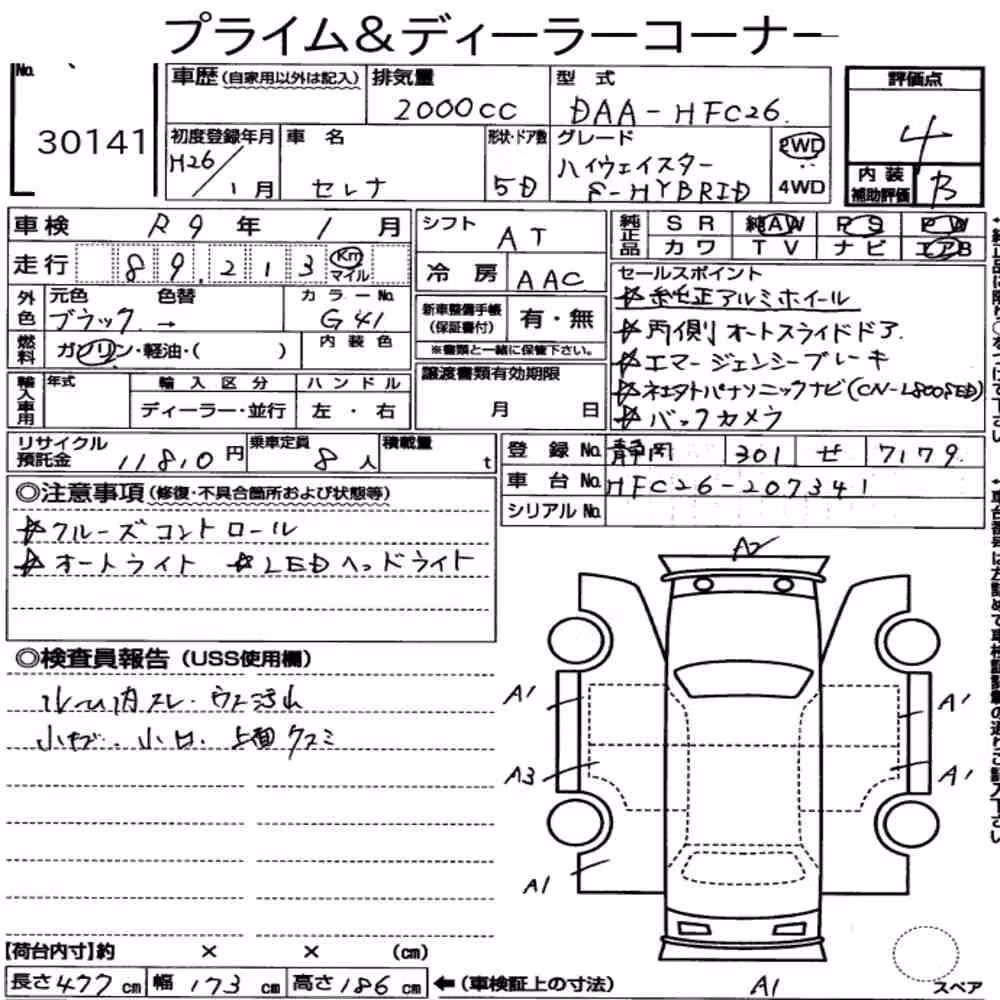 プライム&ディーラーコーナー
No.
30141
車歴(自家用以外は記入)
排気量
2000cc
型 式
DAA-HFC26.
評価点
4
内装
補助評価
B
初度登録年月
H26/1月
車 名
セレナ
形状・ドア数
5D
グレード
ハイウェイスター
S-HYBRID
2WD
4WD
車検 R9年 1月
走行 89,213 Km
マイル
外色
元色 色替
ブラック →
カラーNo.
G41
燃料
ガソリン・軽油・( )
内装色
輸入車用
年式
輸入区分
ディーラー・並行
ハンドル
左・右
シフト
AT
冷房
AAC
新車整備手帳
(保証書付)
有・無
※書類と一緒に保管下さい。
譲渡書類有効期限
月 日
純正品
SR 純AW PS PW
カワ TV ナビ エアB
セールスポイント
☆純正アルミホイール
☆両側オートスライドドア.
☆エマージェンシーブレーキ
☆社外パナソニックナビ(CN-L800SED)
☆バックカメラ
リサイクル
預託金
11810円
乗車定員
8人
積載量
t
登録No. 静岡 301 せ 7179.
車台No. HFC26-207341
シリアルNo.
◎注意事項(修復・不具合箇所および状態等)
☆クルーズコントロール
☆オートライト ☆LEDヘッドライト
◎検査員報告(USS使用欄)
内スレ・ウス汚れ
小キズ・小凹・上面クスミ
A2
A1
A1
A3
A1
A1
A1
スペア
【荷台内寸】約 × × (cm)
長さ477cm 幅173cm 高さ186cm ←(車検証上の寸法)